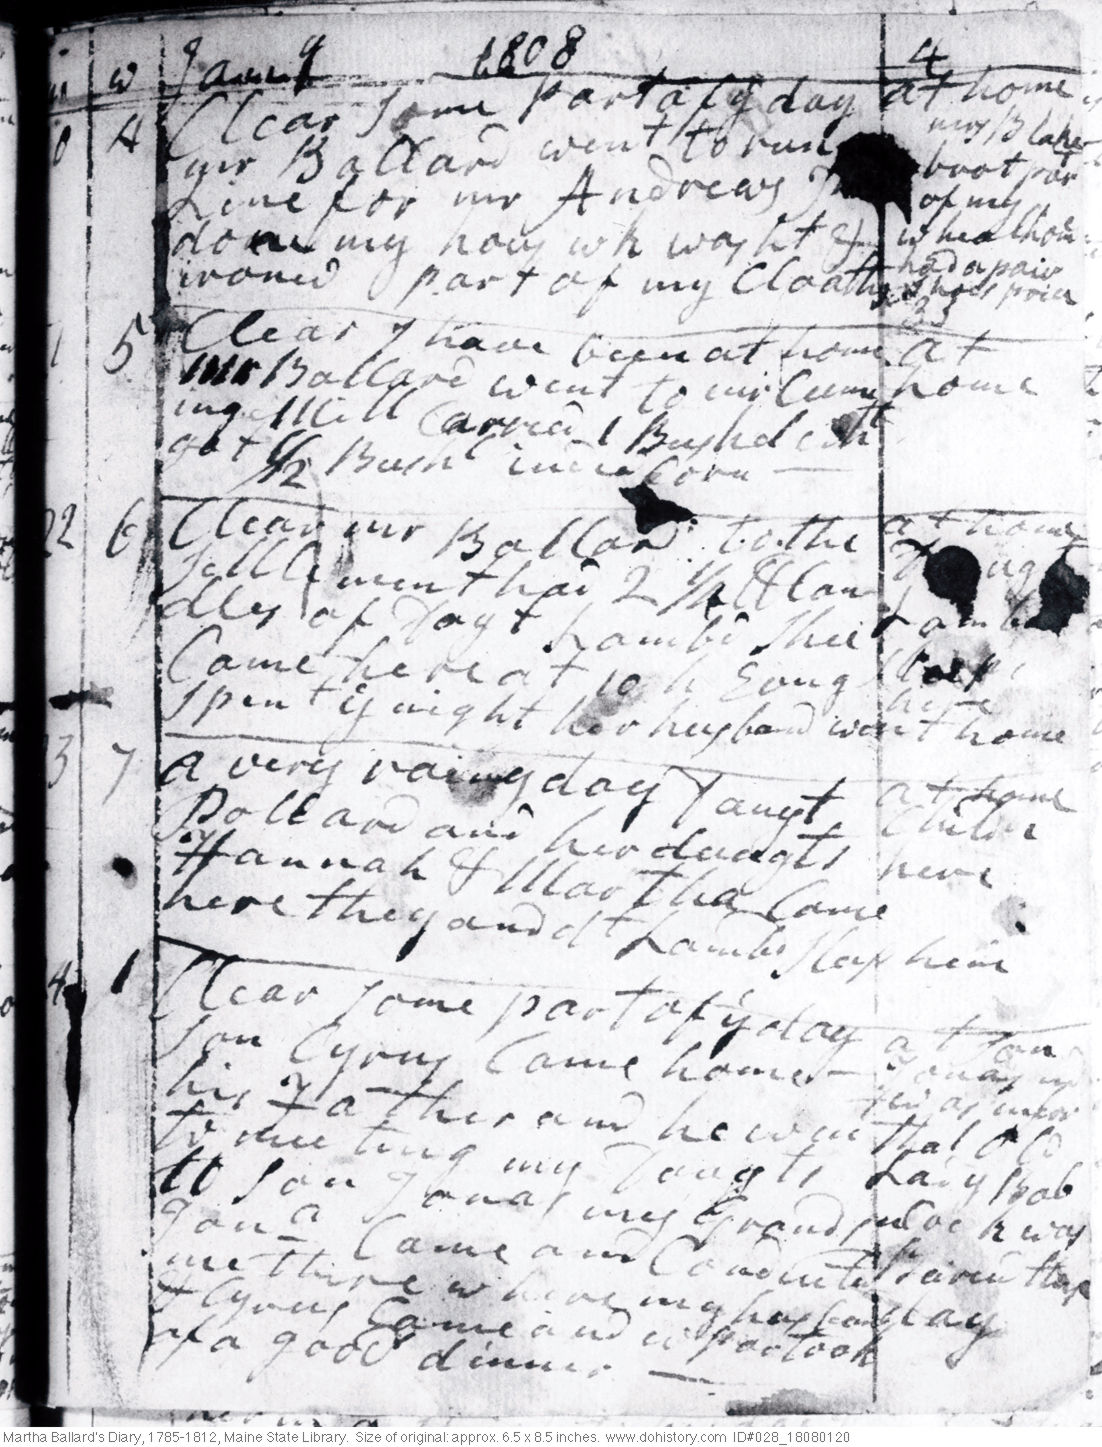 w Jany 1808 4
4 Clear some part of ye day
mr Ballard went to run
Line for mr Andrews
done my hous wk washt &
ironed part of my Cloaths
at home
mrs Blake
brot part
of my
had a pair
shoes price
5 Clear I have been at home
mr Ballard went to mr Cum
ings Mill Carried 1 Bushel
got 1/2 Bush indn Corn
at
home
22 6 Clear mr Ballard to the
settlement had 2 1/2 Can
dles of Dagt Lambd Shee
Came here at 10 h Evng
spent ye night her husband went home
at home
Lambd
sleeps
here
3 7 a very rainy day Daugt
Pollard and her daugts
Hannah & Martha Came
here they and dt Lambd Slap here
at home
Childn
here
4 1 Clear some part of ye day
son Cyrus Came home
his Father and he went
to meeting my Daugts
to son Jonas my Grand
gon Came and Conducted
me there where my husband
& Cyrus Came and w partook
of a good dinner
at son
Jonas
that Old
Lady Bab
Cock was
day
Martha Ballard's Diary, 1785-1812, Maine State Library. Size of original: approx. 6.5 x 8.5 inches. www.dohistory.com ID#028_18080120